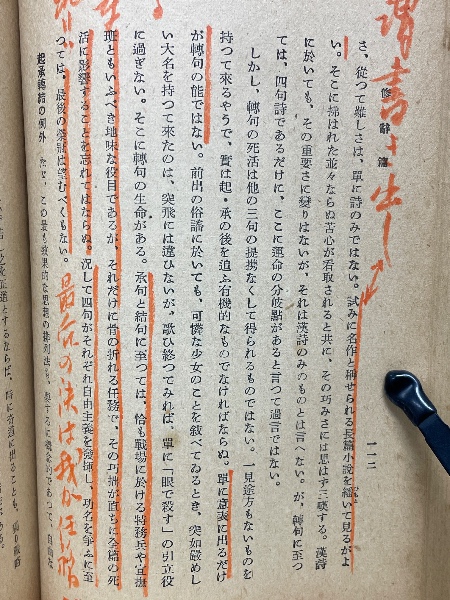 修辭篇
一一二
さ、從つて難しさは、單に詩のみではない。試みに名作と稱せられる長篇小說を繙いて見るがよ
い。そこに拂はれた並々ならぬ苦心が看取されると共に、その巧みさには思はず三嘆する。漢詩
に於いても、その重要さに變りはないが、それは漢詩のみのものとは言へない。が、轉句に至つ
ては、四句詩であるだけに、ここに運命の分岐點があると言つて過言ではない。
しかし、轉句の死活は他の三句の提携なくして得られるものではない。一見途方もないものを
持つて來るやうで、實は起・承の後を追ふ有機的なものでなければならぬ。單に意表に出るだけ
が轉句の能ではない。前出の俗謠に於いても、可憐な少女のことを敍べてゐるとき、突如嚴めし
い大名を持つて來たのは、突飛には違ひないが、歌ひ終つてみれば、單に「眼で殺す」の引立役
に過ぎない。そこに轉句の生命がある。承句と結句に至つては、恰も戰場に於ける特務兵や宣撫
班ともいふべき地味な役目であるが、それだけに骨の折れる任務で、その巧拙が直ちに全篇の死
活に影響することを忘れてはならぬ。況して四句がそれぞれ自由主義を發揮し、功名を爭ふに至
つては、最後の
は望むべくもない。
起承轉結の例外
この最も效果的な思想の排列法も、要するに
的であつて、自由な
とするならば、時に奇道に出ることも
書き出し
最后の決は我が任務